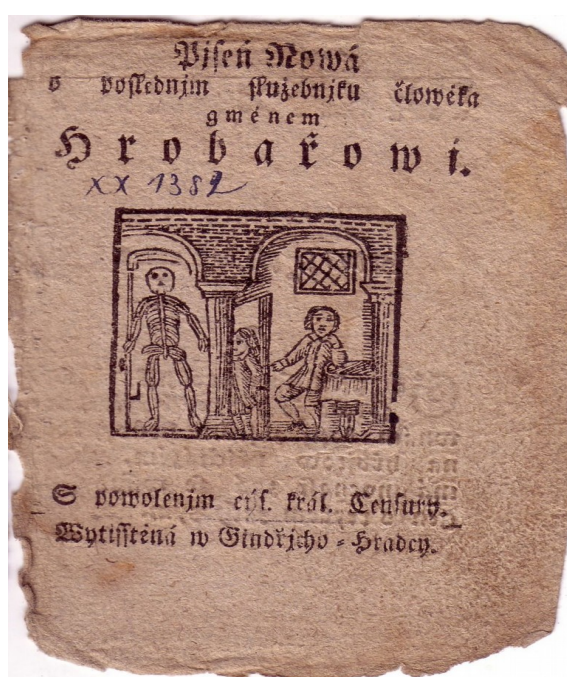 Pjseň Nowá
o poslednjm služebnjku člověka
gménem
Hrobařowi.
XX 1382
S powolenjm cýs. král. Censury.
Wytisstěná w Gindřjcho-Hradcy.